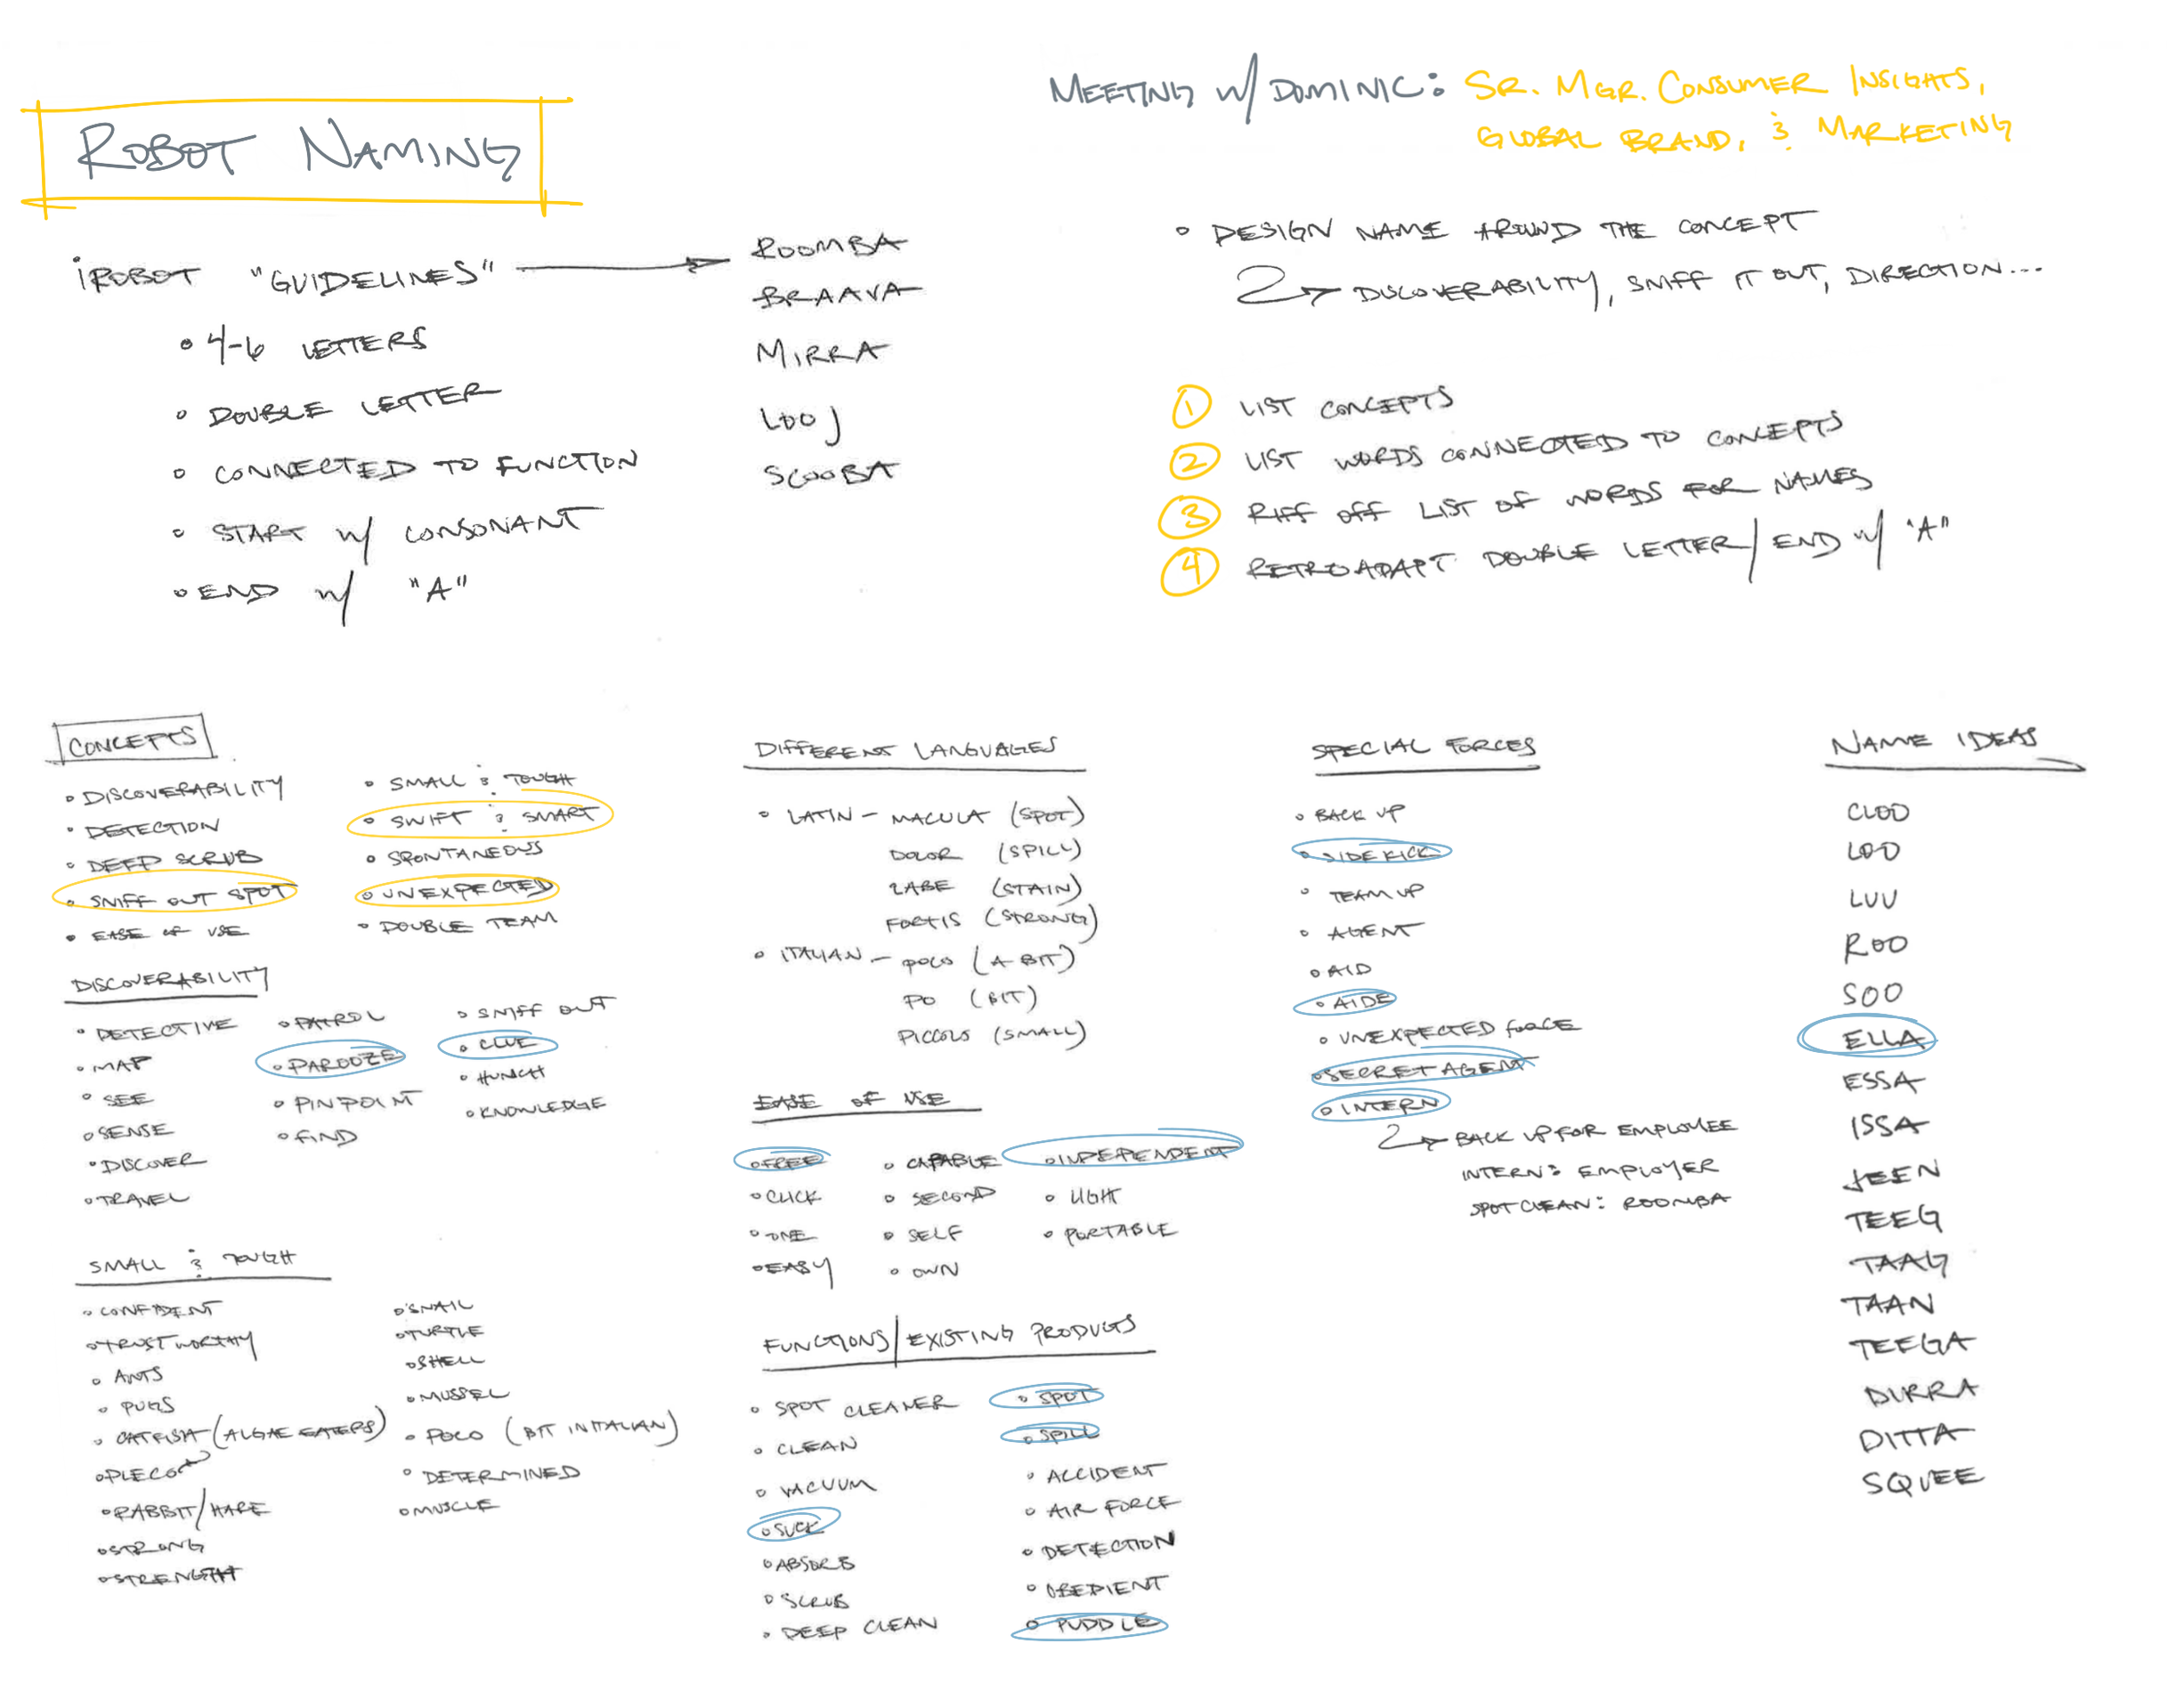 ROBOT NAMING
MEETING W/ DOMINIC: SR. MGR. CONSUMER INSIGHTS,
GLOBAL BRAND, & MARKETING
iROBOT "GUIDELINES"
• 4-6 LETTERS
• DOUBLE LETTER
• CONNECTED TO FUNCTION
• START W/ CONSONANT
• END W/ "A"
ROOMBA
BRAAVA
MIRRA
LOOJ
SCOOBA
• DESIGN NAME AROUND THE CONCEPT
DISCOVERABILITY, SNIFF IT OUT, DIRECTION...
1 LIST CONCEPTS
2 LIST WORDS CONNECTED TO CONCEPTS
3 RIFF OFF LIST OF WORDS FOR NAMES
4 RETROADAPT DOUBLE LETTER/END W/ "A"
CONCEPTS
• DISCOVERABILITY
• DETECTION
• DEEP SCRUB
• SNIFF OUT SPOT
• EASE OF USE
• SMALL & TOUGH
• SWIFT & SMART
• SPONTANEOUS
• UNEXPECTED
• DOUBLE TEAM
DISCOVERABILITY
• DETECTIVE
• MAP
• SEE
• SENSE
• DISCOVER
• TRAVEL
• PATROL
• PAROOZE
• PINPOINT
• FIND
• SNIFF OUT
• CLUE
• HUNCH
• KNOWLEDGE
SMALL & TOUGH
• CONFIDENT
• TRUSTWORTHY
• ANTS
• PUGS
• CATFISH (ALGAE EATERS)
• PLECO
• RABBIT/HARE
• STRONG
• STRENGTH
• SNAIL
• TURTLE
• SHELL
• MUSSEL
• POCO (BIT IN ITALIAN)
• DETERMINED
• MUSCLE
DIFFERENT LANGUAGES
• LATIN - MACULA (SPOT)
DOLOR (SPILL)
LABE (STAIN)
FORTIS (STRONG)
• ITALIAN - POCO (A BIT)
PO (BIT)
PICCOLO (SMALL)
EASE OF USE
• FREE
• CLICK
• ONE
• EASY
• CAPABLE
• SECOND
• SELF
• OWN
• INDEPENDENT
• LIGHT
• PORTABLE
FUNCTIONS/EXISTING PRODUCTS
• SPOT CLEANER
• CLEAN
• VACUUM
• SUCK
• ABSORB
• SCRUB
• DEEP CLEAN
• SPOT
• SPILL
• ACCIDENT
• AIR FORCE
• DETECTION
• OBEDIENT
• PUDDLE
SPECIAL FORCES
• BACK UP
• SIDEKICK
• TEAM UP
• AGENT
• AID
• AIDE
• UNEXPECTED FORCE
• SECRET AGENT
• INTERN
BACK UP FOR EMPLOYEE
INTERN: EMPLOYER
SPOT CLEAN: ROOMBA
NAME IDEAS
CLOO
LOO
LUU
ROO
SOO
ELLA
ESSA
ISSA
JEEN
TEEG
TAAG
TAAN
TEEGA
DIRRA
DITTA
SQUEE